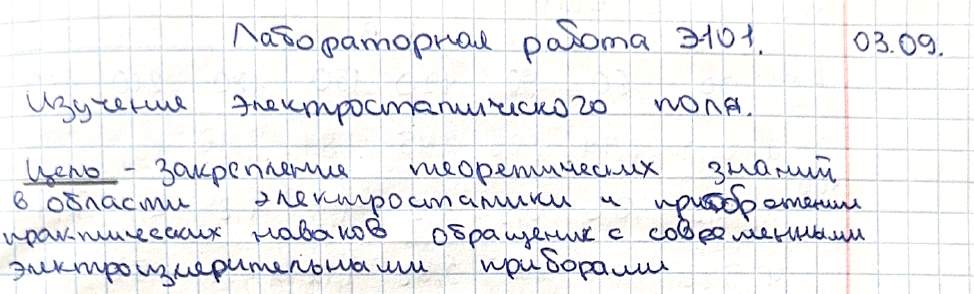 Лабораторная работа Э101. 03.09.
Изучение электростатического поля.
Цель - закрепление теоретических знаний
в области электростатики и приобретении
практических наваков обращения с современными
электроизмерительными приборами